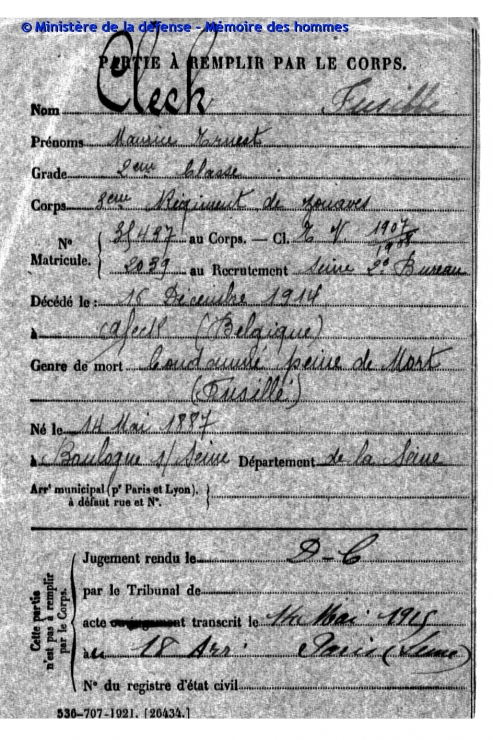 © Ministère de la défense - Mémoire des hommes
PARTIE À REMPLIR PAR LE CORPS.
Nom Clech Fusillé
Prénoms Maurice Ernest
Grade 2eme Classe
Corps 8eme Régiment de Zouaves
N° Matricule. { 35437 au Corps. — Cl. 1907
2039 au Recrutement Seine 2° Bureau
Décédé le : 16 Décembre 1914
à (Belgique)
Genre de mort Condamné peine de Mort
(Fusillé)
Né le 14 Mai 1887
à Boulogne s/ Seine Département de la Seine
Arrt municipal (pr Paris et Lyon), }
à défaut rue et N°.
Cette partie n'est pas à remplir par le Corps.
Jugement rendu le D-C
par le Tribunal de
acte transcrit le 14 Mai 1915
au 18 Arr: Paris (Seine)
N° du registre d'état civil
536-707-1921. [26434.]